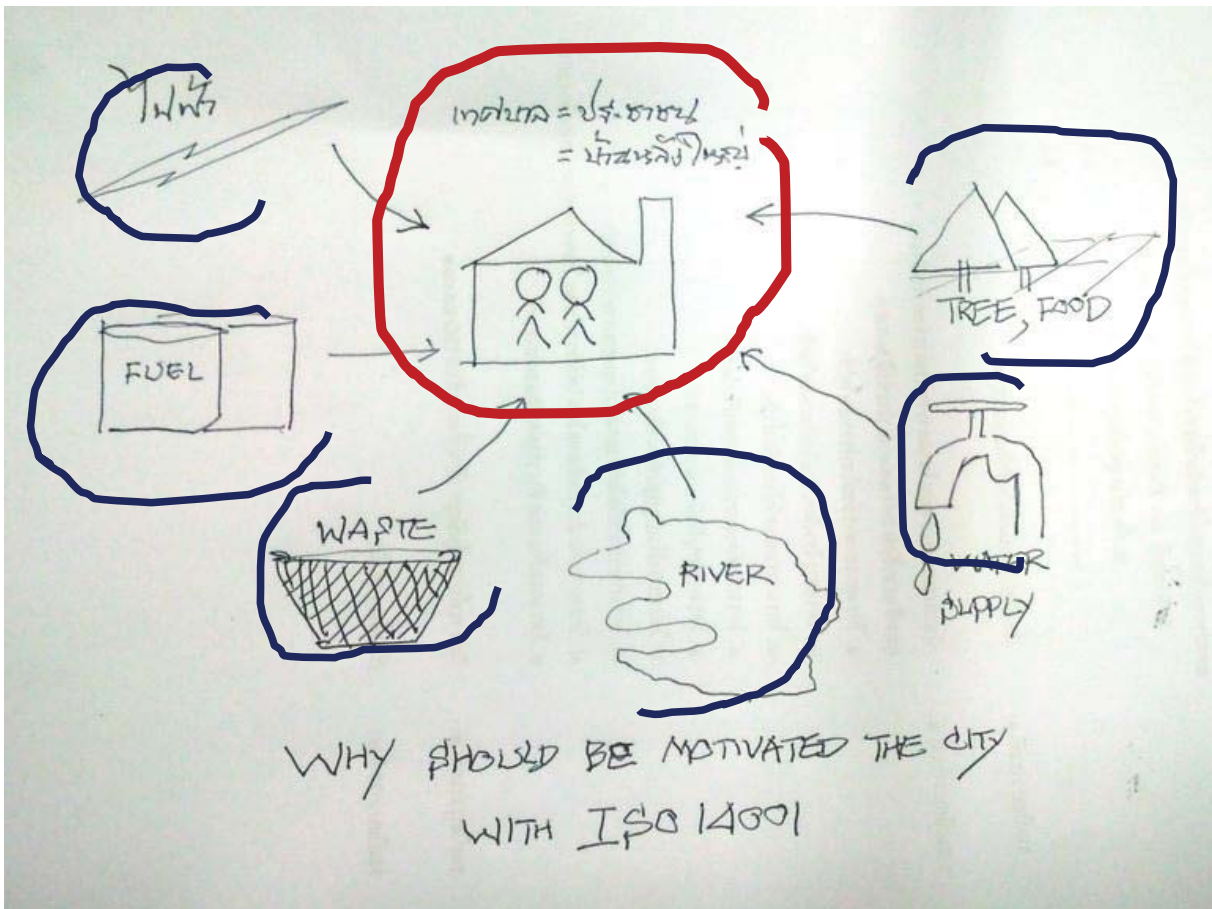 ไฟฟ้า
เทศบาล = ประชาชน
= บ้านหลังใหญ่
TREE, FOOD
FUEL
WASTE
RIVER
WATER
SUPPLY
WHY SHOULD BE MOTIVATED THE CITY
WITH ISO 14001